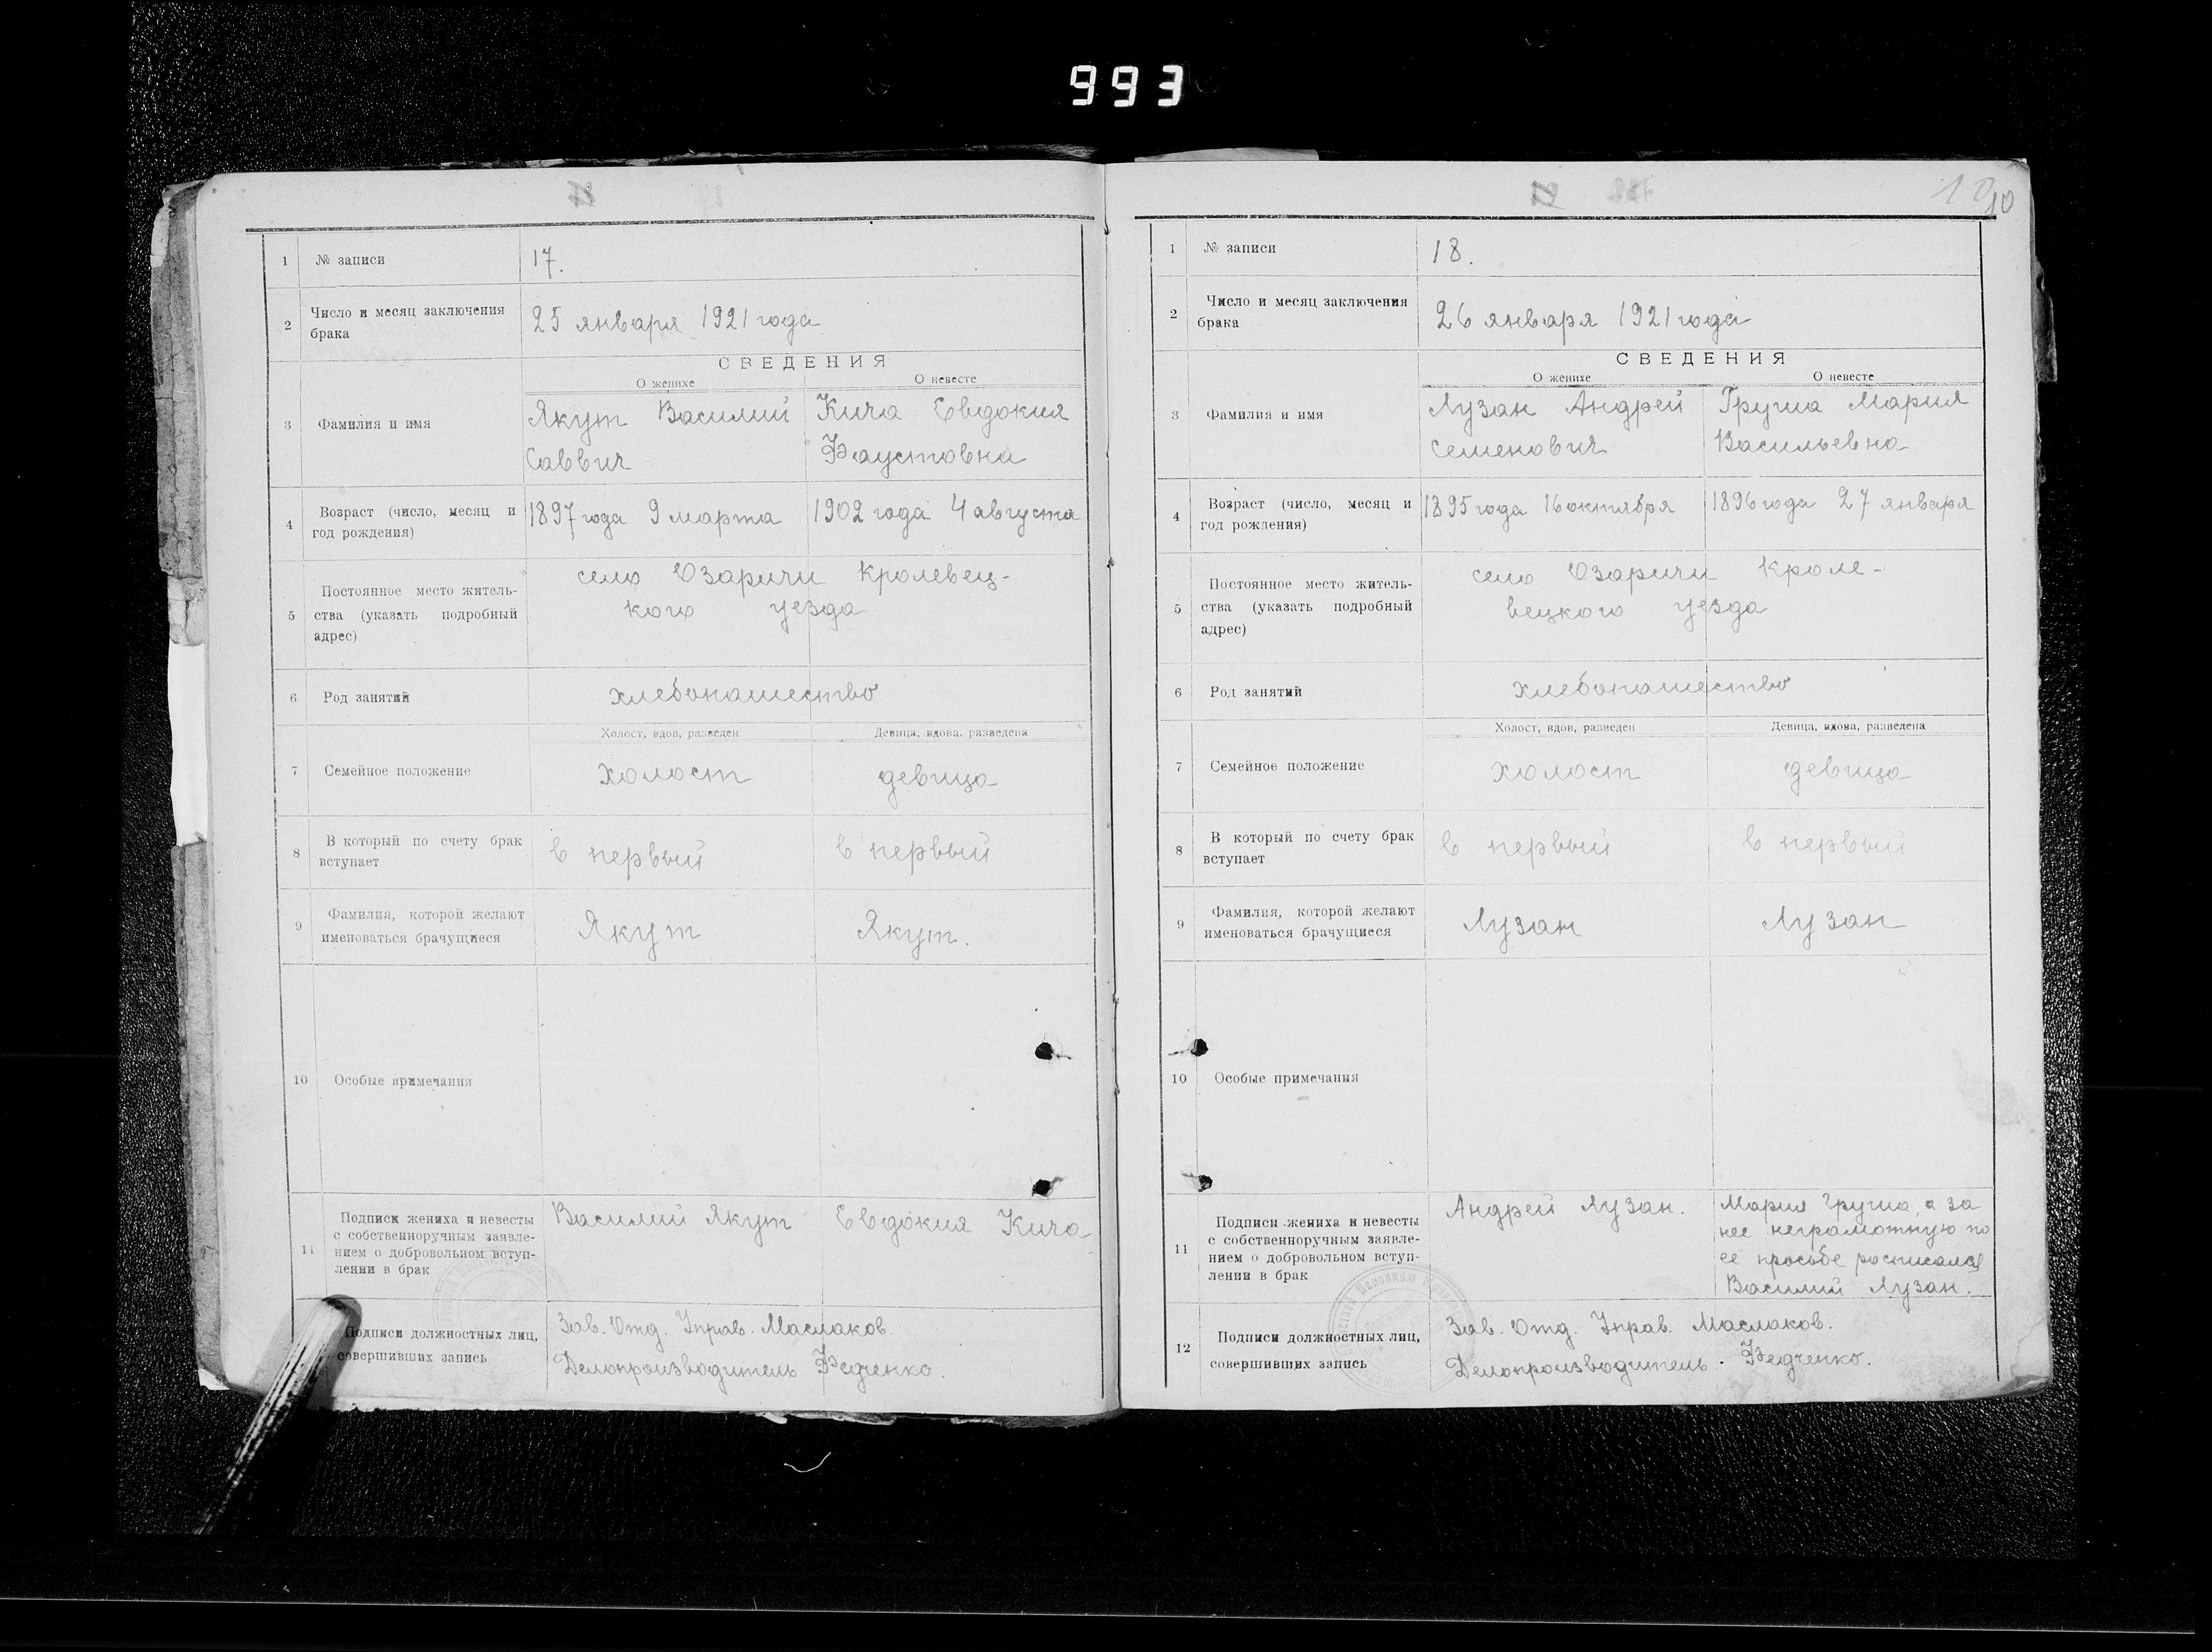 993
1 № записи 17.
2 Число и месяц заключения
брака
25 января 1921 года
СВЕДЕНИЯ
О женихе О невесте
3 Фамилия и имя
Якут Василий
Саввич
Кича Евдокия
Фаустовна
4 Возраст (число, месяц и
год рождения)
1897 года 9 марта 1902 года 4 августа
5 Постоянное место житель-
ства (указать подробный
адрес)
село Озаричи Кролевец-
кого уезда
6 Род занятий хлебопашество
Холост, вдов, разведен Девица, вдова. разведена
7 Семейное положение холост девица
8 В который по счету брак
вступает
в первый в первый
9 Фамилия, которой желают
именоваться брачущиеся
Якут Якут.
10 Особые примечания
11 Подписи жениха и невесты
с собственноручным заявле-
нием о добровольном вступ-
лении в брак
Василий Якут Евдокия Кича
Подписи должностных лиц,
совершивших запись
Зав. Отд. Управ. Маслаков.
Делопроизводитель Федченко.
10
10
1 № записи 18.
2 Число и месяц заключения
брака
26 января 1921 года
СВЕДЕНИЯ
О женихе О невесте
3 Фамилия и имя
Лузан Андрей
Семенович
Груша Мария
Васильевна
4 Возраст (число, месяц и
год рождения)
1895 года 16 октября 1896 года 27 января
5 Постоянное место житель-
ства (указать подробный
адрес)
село Озаричи Кроле-
вецкого уезда
6 Род занятий хлебопашество
Холост, вдов, разведен Девица, вдова, разведена
7 Семейное положение холост девица
8 В который по счету брак
вступает
в первый в первый
9 Фамилия, которой желают
именоваться брачущиеся
Лузан Лузан
10 Особые примечания
11 Подписи жениха и невесты
с собственноручным заявле-
нием о добровольном вступ-
лении в брак
Андрей Лузан.
Мария Груша, а за
нее неграмотную по
ее просьбе росписался
Василий Лузан.
12 Подписи должностных лиц,
совершивших запись
Зав. Отд. Управ. Маслаков.
Делопроизводитель. Федченко.